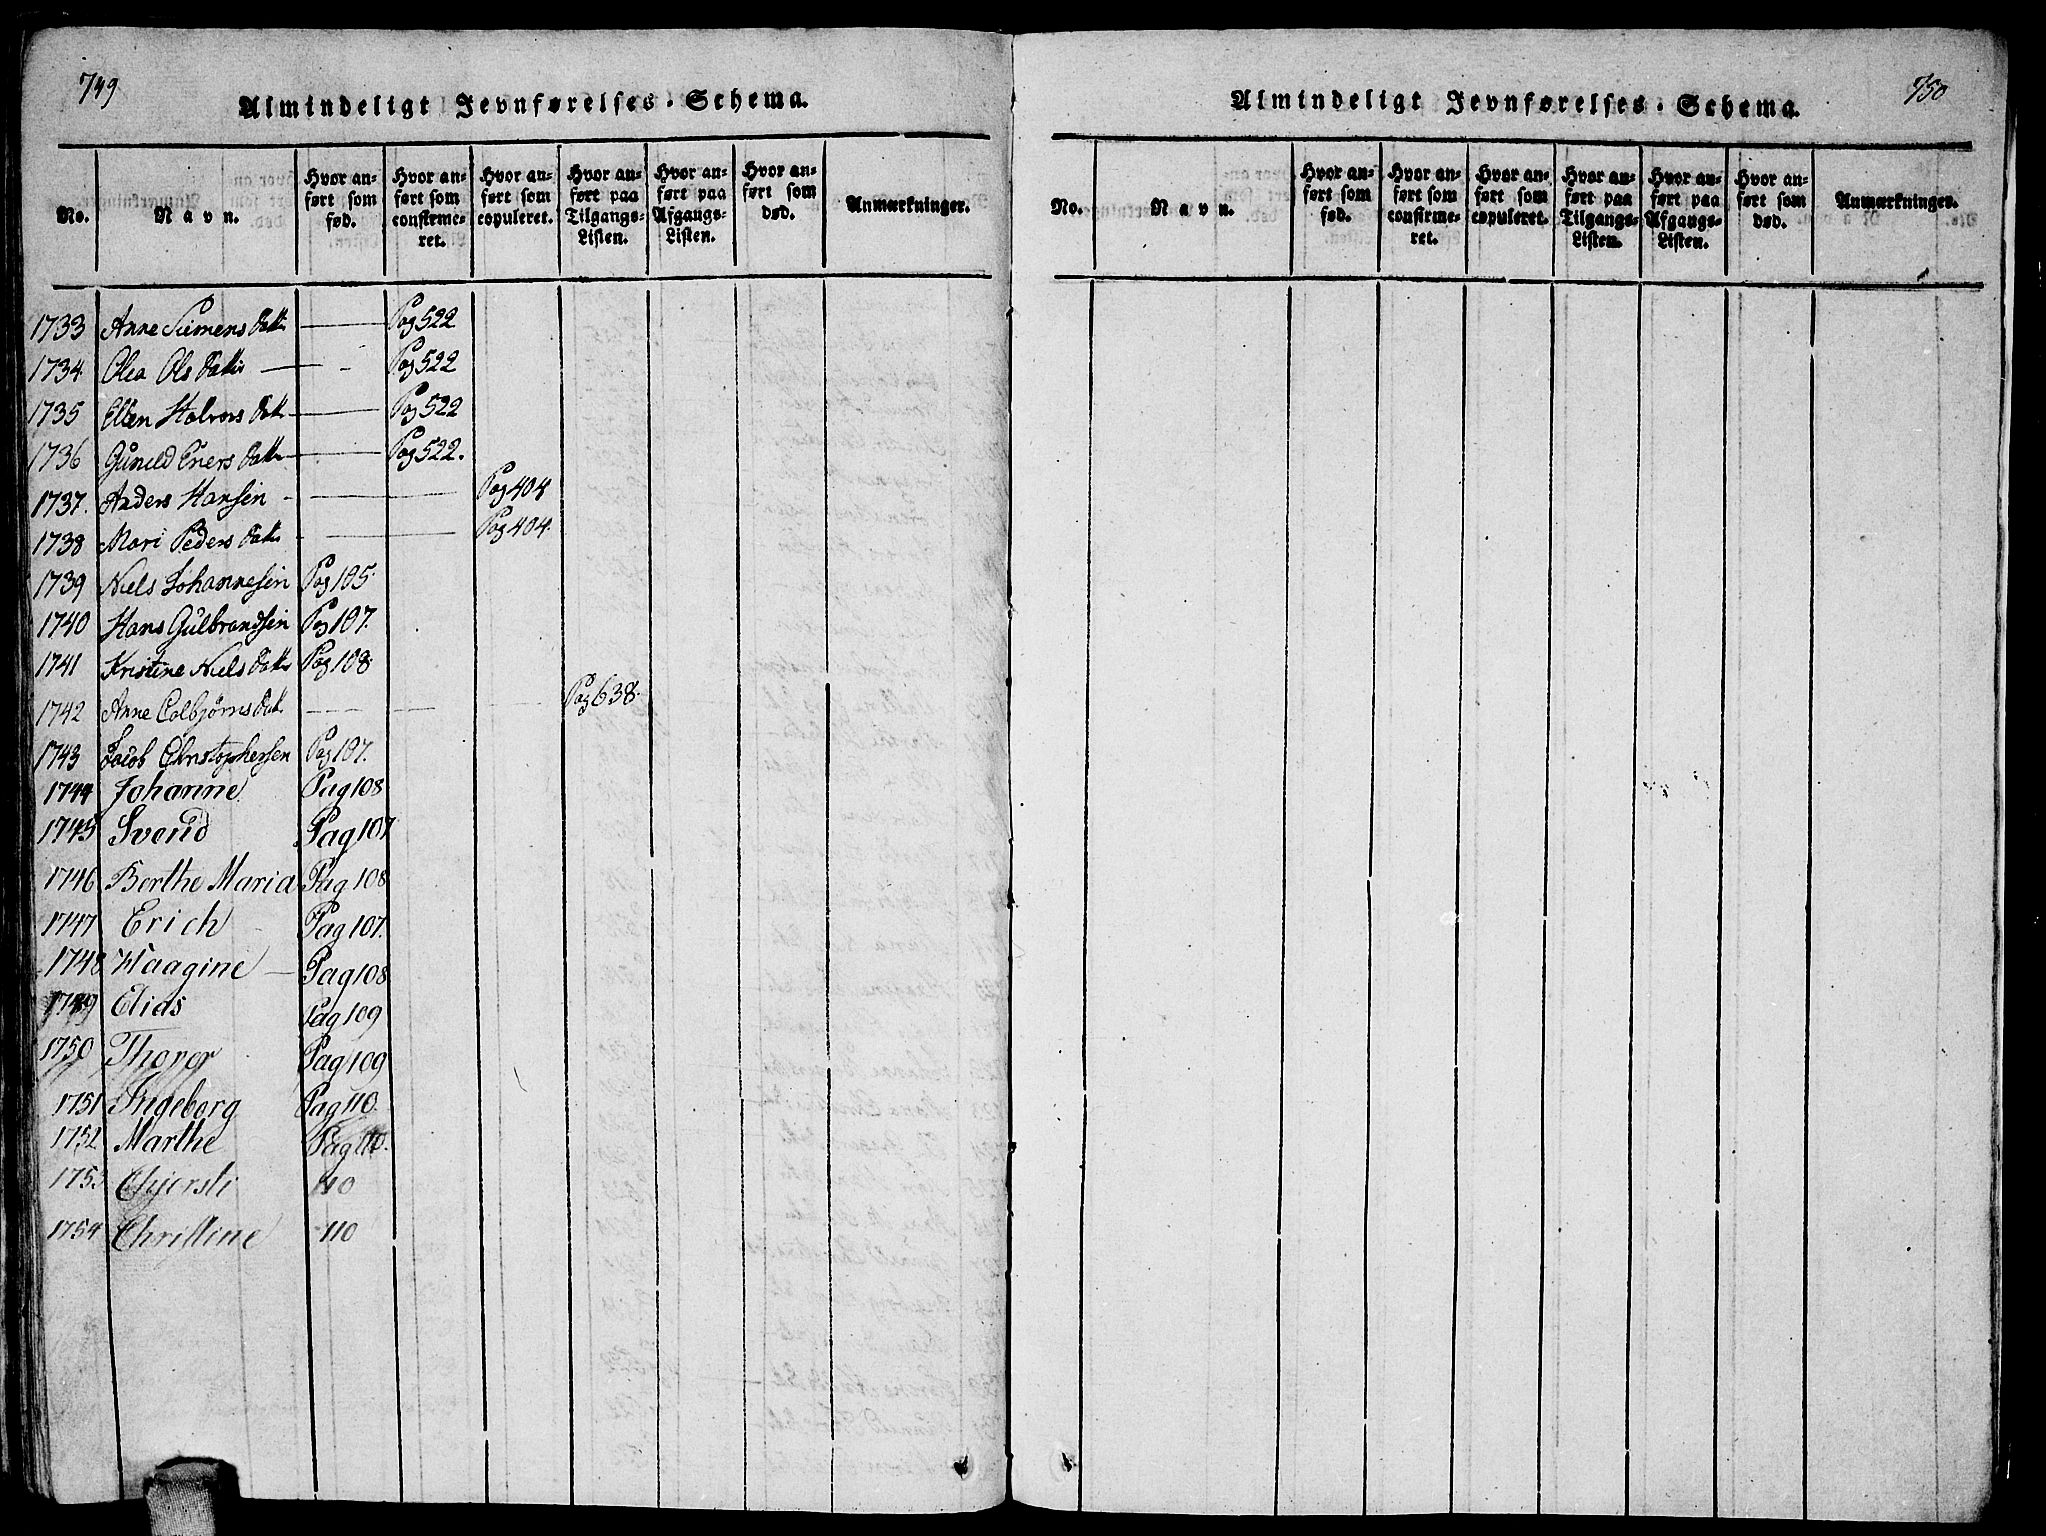 749
Almindeligt Jevnførelses-Schema.
No. Navn. Hvor anført som fød. Hvor anført som confirmeret. Hvor anført som copuleret. Hvor anført paa Tilgangs-Listen. Hvor anført paa Afgangs-Listen. Hvor anført som død. Anmærkninger.
1733 Anne Simens Datt. Pag 522
1734 Olea Ols Datter Pag 522
1735 Ellen Halvors Datt. Pag 522
1736 Gunild Eners Datt. Pag 522.
1737. Anders Hansen Pag 404
1738 Mari Peders Datt. Pag 404.
1739 Niels Johannesen Pag 105.
1740 Hans Gulbrandsen Pag 107.
1741 Kristine Niels Datt. Pag 108.
1742 Anne Colbjørns Datt. Pag 638.
1743 Jacob Christophersen Pag 107.
1744 Johanne Pag 108
1745 Svend Pag 107
1746 Berthe Maria Pag 108
1747 Erich Pag 107.
1748 Haagine Pag 108
1749 Elias Pag 109
1750 Thorer Pag 109
1751 Ingeborg Pag 110.
1752 Marthe Pag 110.
1753 Chjersti 110
1754 Christine 110
750
Almindeligt Jevnførelses-Schema.
No. Navn. Hvor anført som fød. Hvor anført som confirmeret. Hvor anført som copuleret. Hvor anført paa Tilgangs-Listen. Hvor anført paa Afgangs-Listen. Hvor anført som død. Anmærkninger.